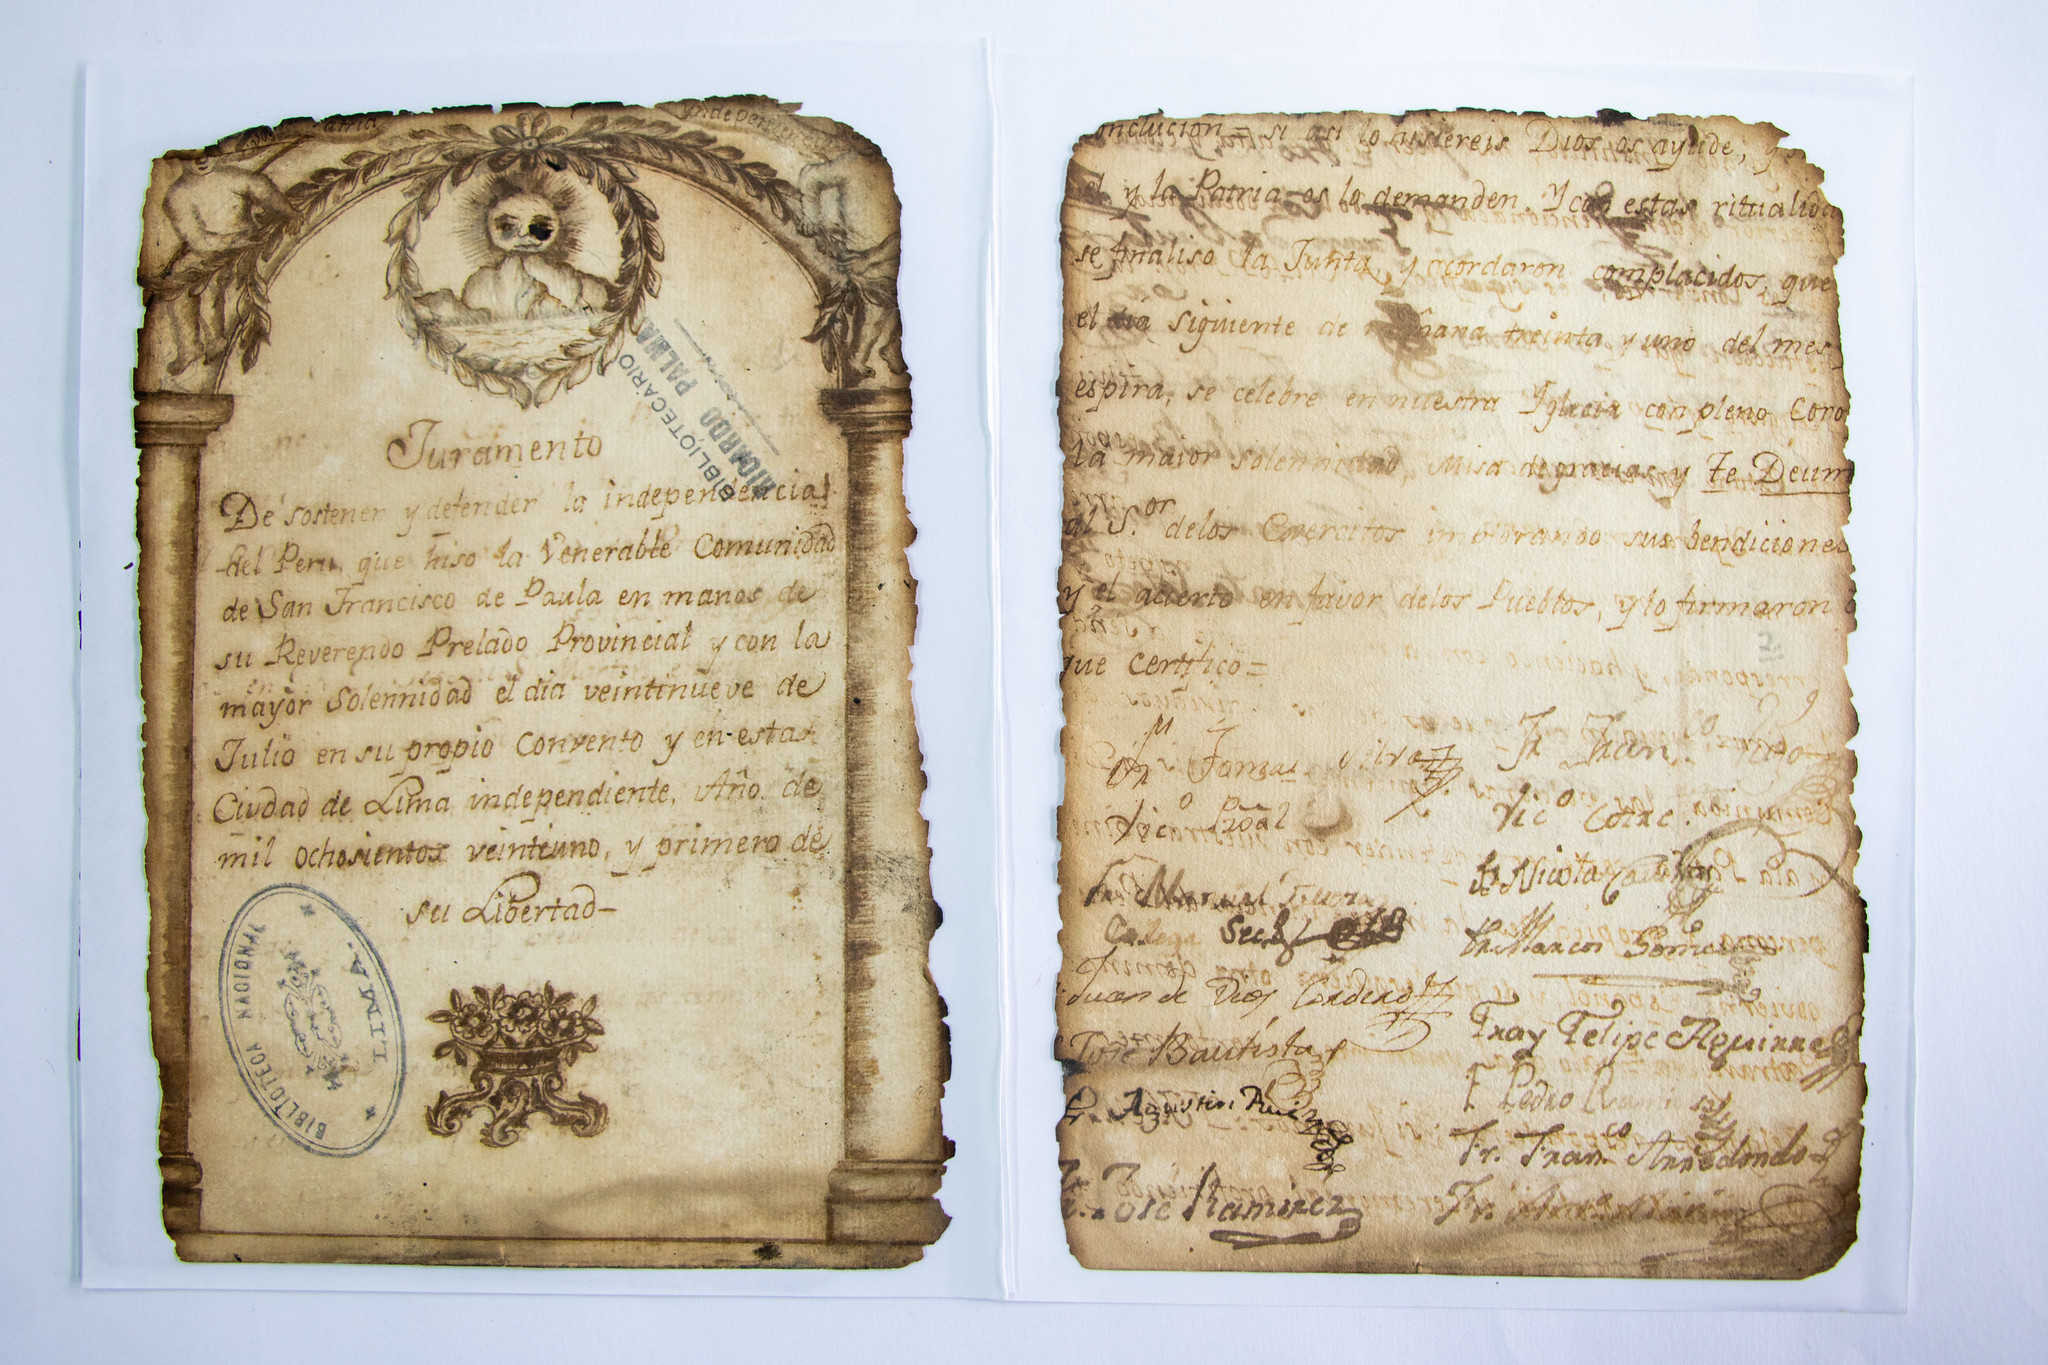 Patria
Yndependencia
BIBLIOTECARIO
RICARDO PALMA
Juramento
De sostener y defender la independencia
del Peru, que hiso la Venerable Comunidad
de San Francisco de Paula en manos de
su Reverendo Prelado Provincial y con la
mayor solennidad el dia veintinueve de
Julio en su propio Convento y en esta
Ciudad de Lima independiente, Año de
mil ochosientos veintiuno, y primero de
su Libertad
BIBLIOTECA NACIONAL
LIMA.
onclucion = si asi lo hisiereis Dios os ayude, y
el y la Patria os lo demanden. Y con estas ritualida
se finaliso la Junta, y acordaron complacidos, que
el dia siguiente de mañana treinta y uno del mes
espira, se celebre en nuestra Yglecia con pleno Coro
la maior solennidad, Misa de gracias y Te Deum
al S.or delos Exercitos implorando sus bendiciones
y el acierto en favor delos Pueblos, y lo firmaron
que certifico=
Fr Tomas Silva
Fr Fran.co
Vic.o Pròal
Vic.o
Fr Manuel
Fr Nicolas
Colega Sec.
Fr. Marcos
Juan de Dios Cordero
Fray Felipe Aguirre
Jose Bautista
F Pedro Rami
F. Agustin Ruiz
Fr. Fran.co Arredondo
Jose Ramirez
Fr.